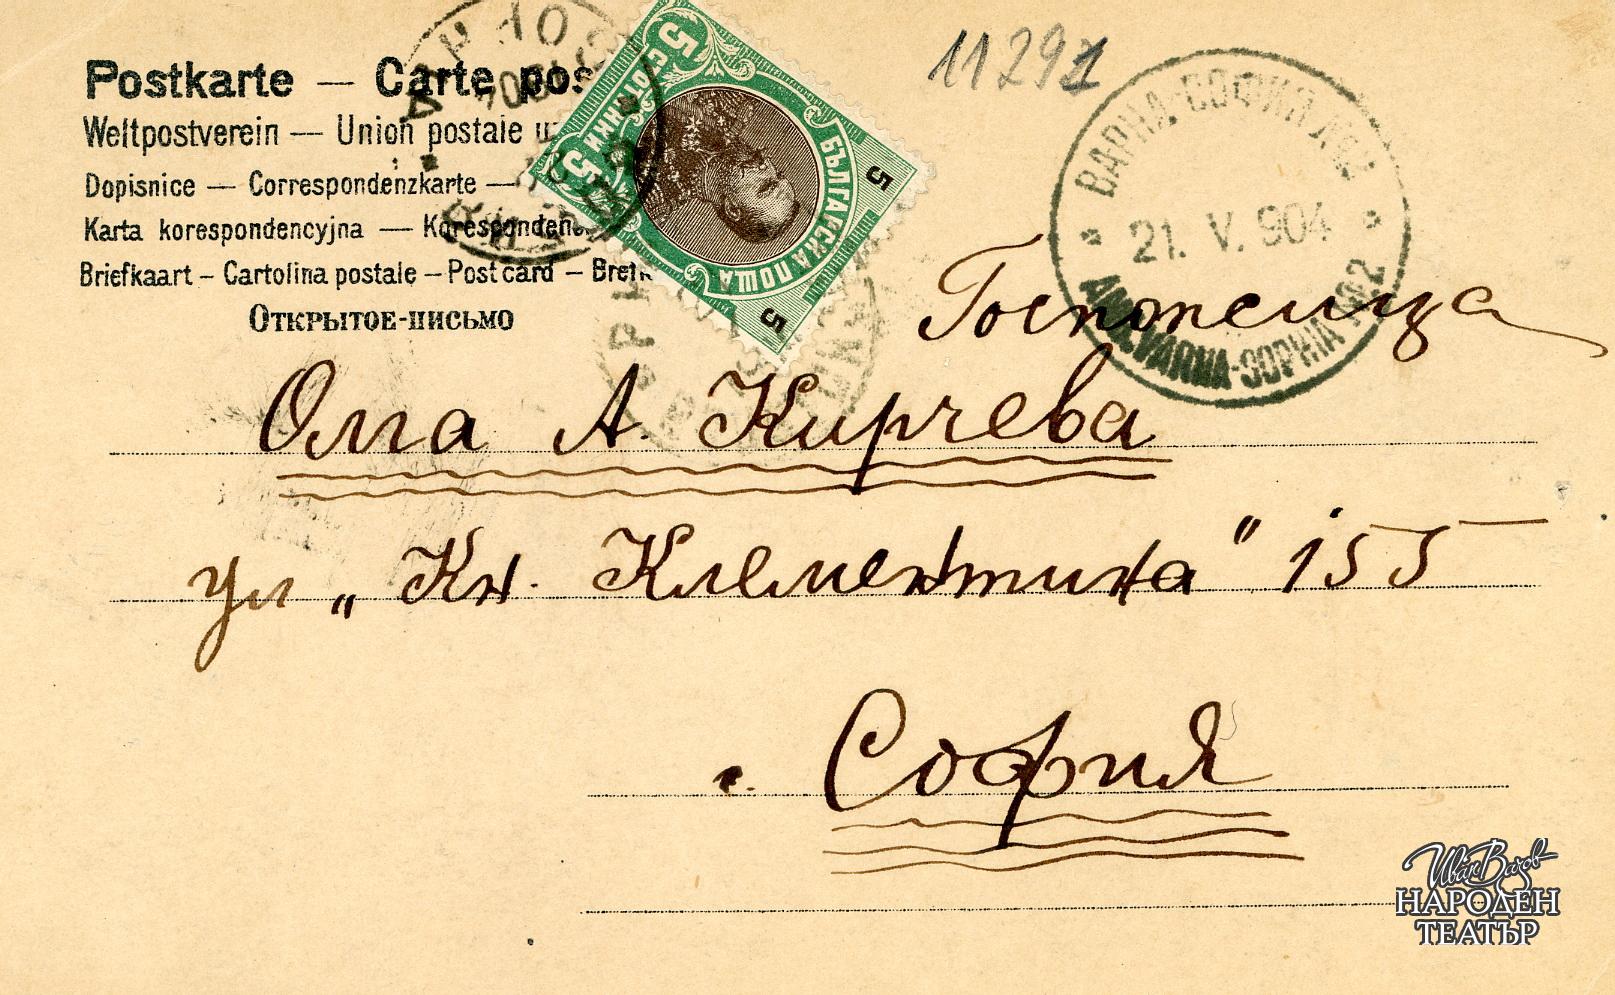 Postkarte — Carte pos
Weltpostverein — Union postale u
Dopisnice — Correspondenzkarte —
Karta korespondencyjna — Korespondenc
Briefkaart – Cartolina postale – Post card – Bref
Открытое-письмо
5 СТОТИНКИ 5
БЪЛГАРСКА ПОЩА
5
5
11291
ВАРНА-СОФИЯ №2
21. V. 904
AMB. VARNA-SOPHIA №2
Госпожица
Олга А. Кирчева
ул „Кн. Клементина" 155
г. София
Иван Вазов
НАРОДЕН
ТЕАТЪР